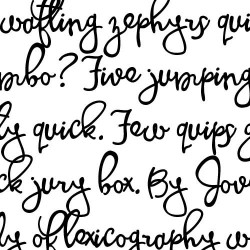 wafting zephyrs qui
mbo? Five jumping
ty quick. Few quips g
ck jury box. By Jov
dy of lexicography w